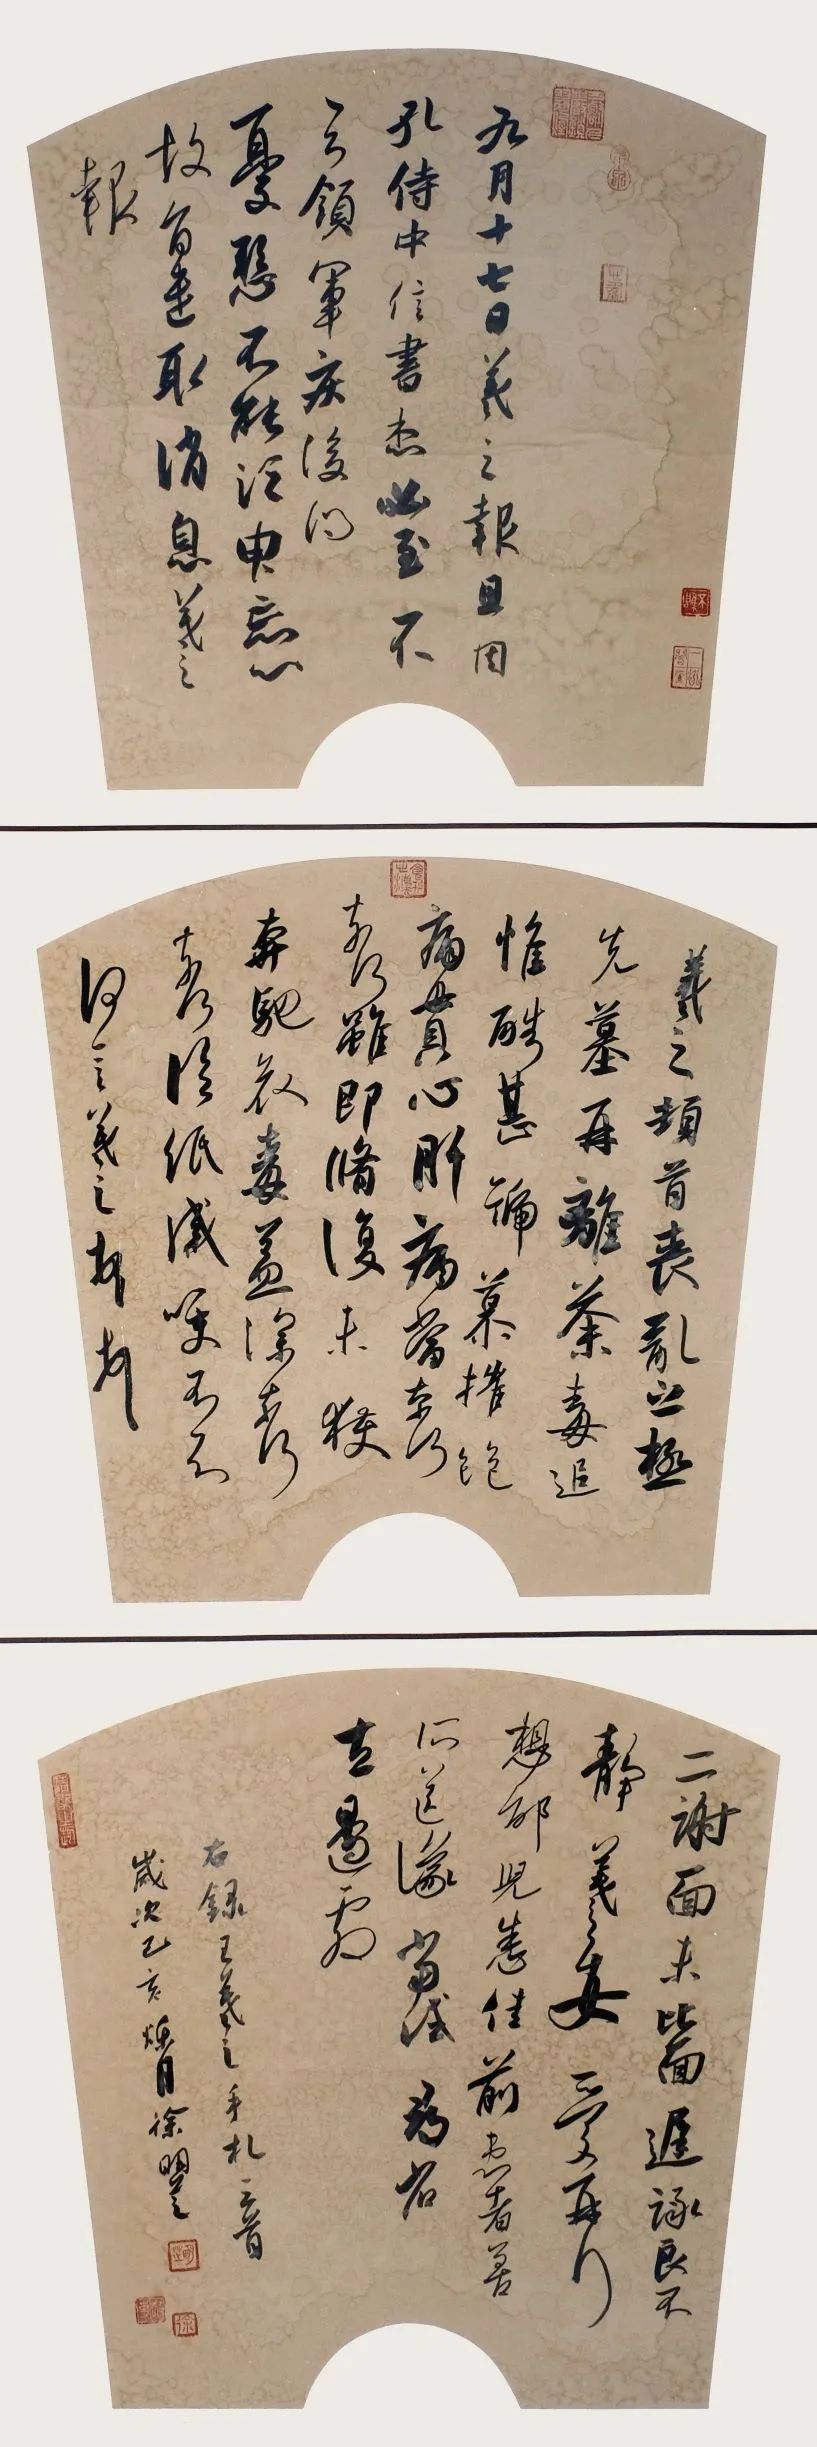 九月十七日羲之報且因
孔侍中信書想必至不
知領軍疾後問
憂懸不能須臾忘心
故旨遣取消息羲之
報
羲之頓首喪亂之極
先墓再離荼毒追
惟酷甚號慕摧絕
痛貫心肝痛當奈何
奈何雖即脩復未獲
奔馳哀毒益深奈何
奈何臨紙感哽不知
何言羲之頓首頓首
二謝面未比面遲詠良不
靜羲之女愛再拜
想邰兒悉佳前患者善
所送議當試尋省
左邊劇
右錄王羲之手札三首
歲次乙亥爍月徐明